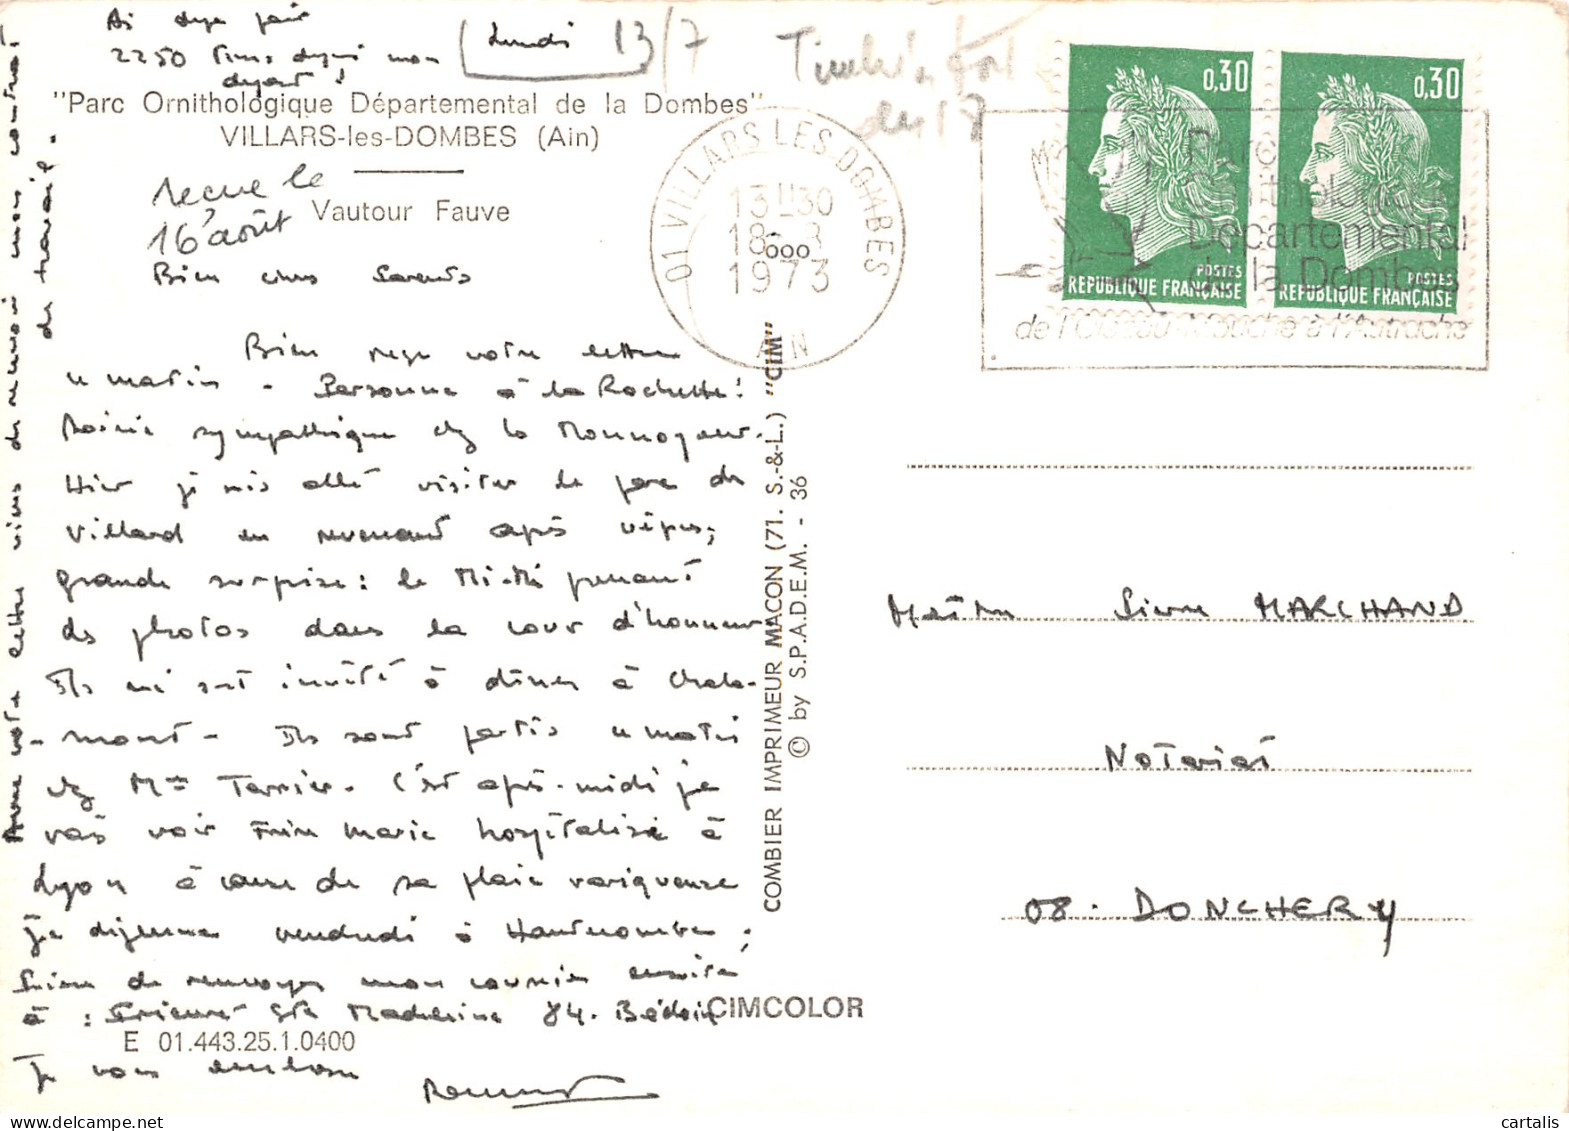 Ai deja fait
2250 Kms depuis mon
départ !
Lundi 13/7
Timbré
du 18
"Parc Ornithologique Départemental de la Dombes"
VILLARS-les-DOMBES (Ain)
Vautour Fauve
recue le
16 août
Bien chers Parents
Bien reçu votre lettre
ce matin - Personne à la Rochette !
Soirée sympathique chez le Monnoyeur.
Hier je suis allé visiter le parc de
Villard en revenant après vêpres,
grande surprise : le Mi-Mi prenant
des photos dans la cour d'honneur
Ils m'ont invité à dîner à Chala-
-mont - Ils sont partis ce matin
chez Mme Terrier. Cet après-midi je
vais voir Frère Marie hospitalisé à
Lyon à cause de sa plaie variqueuse
je déjeune vendredi à Hautecombe ;
Prière de renvoyer mon courrier ensuite
à : Prieuré Ste Madeleine 84. Bédoin
Je vous embrasse
Avec votre lettre viens de recevoir mon contrat
de travail.
E 01.443.25.1.0400
COMBIER IMPRIMEUR MACON (71. S.-&-L.) "CIM"
© by S.P.A.D.E.M. - 36
CIMCOLOR
01 VILLARS LES DOMBES
13 H 30
18 - 8
1973
AIN
Parc
Ornithologique
Départemental
de la Dombes
de l'Oiseau-Mouche à l'Autruche
0,30
POSTES
REPUBLIQUE FRANÇAISE
0,30
POSTES
REPUBLIQUE FRANÇAISE
Maître Pierre MARCHAND
Notariat
08. DONCHERY
cartalis